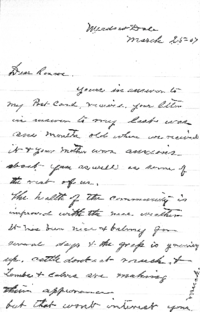 March 25-07
Dear
Yours in answer to
my Post Card, received. Your letter
in answer to my last was
one month old when we received
it & your Mother was anxious
about you as well as some of
the rest of us.
The health of the community is
improved with the nice weather
It has been nice & balmy for
several days & the grass is growing
up, cattle dont eat much, &
Lambs & calves are making
their appearance
but that wont interest you
much.